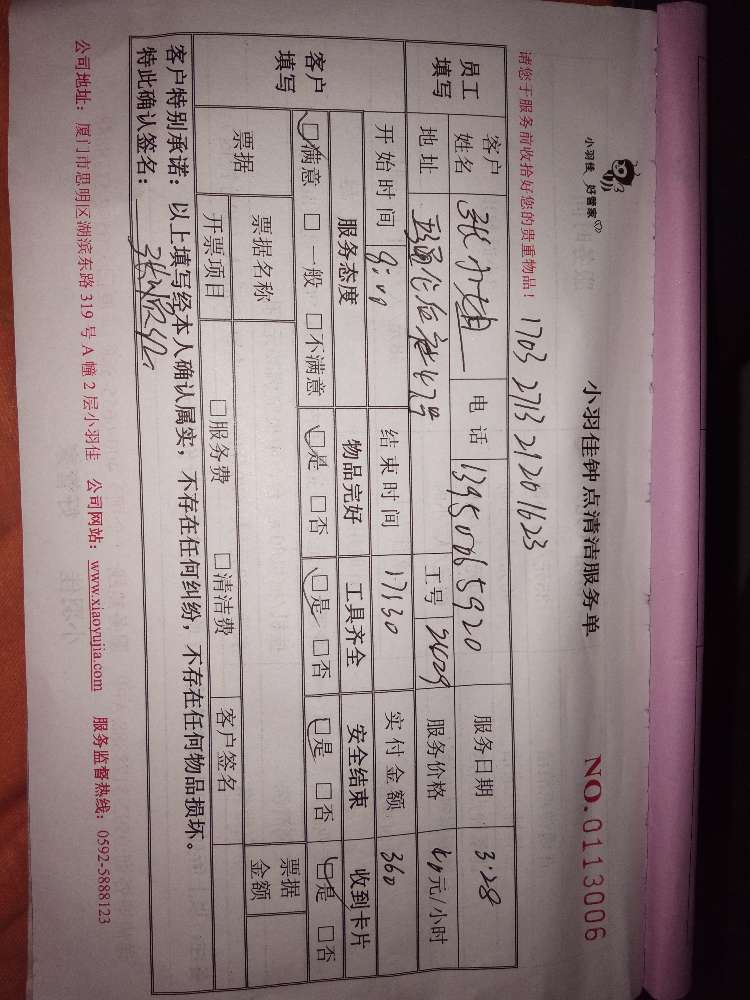 小羽佳 好管家
小羽佳钟点清洁服务单
NO.0113006
请您于服务前收拾好您的贵重物品！
1703 2713 2120 1623
员工填写
客户姓名 张小姐 电话 13950065920 服务日期 3.28
地址 工号 2609 服务价格 40元/小时
开始时间 结束时间 17:30 实付金额 360
客户填写
服务态度 物品完好 工具齐全 安全结束 收到卡片
□满意 □一般 □不满意 □是 □否 □是 □否 □是 □否 □是 □否
票据 票据名称 票据金额
开票项目 □服务费 □清洁费 客户签名
客户特别承诺：以上填写经本人确认属实，不存在任何纠纷，不存在任何物品损坏。
特此确认签名：
公司地址：厦门市思明区湖滨东路 319 号 A 幢 2 层小羽佳 公司网站：www.xiaoyujia.com 服务监督热线：0592-5888123